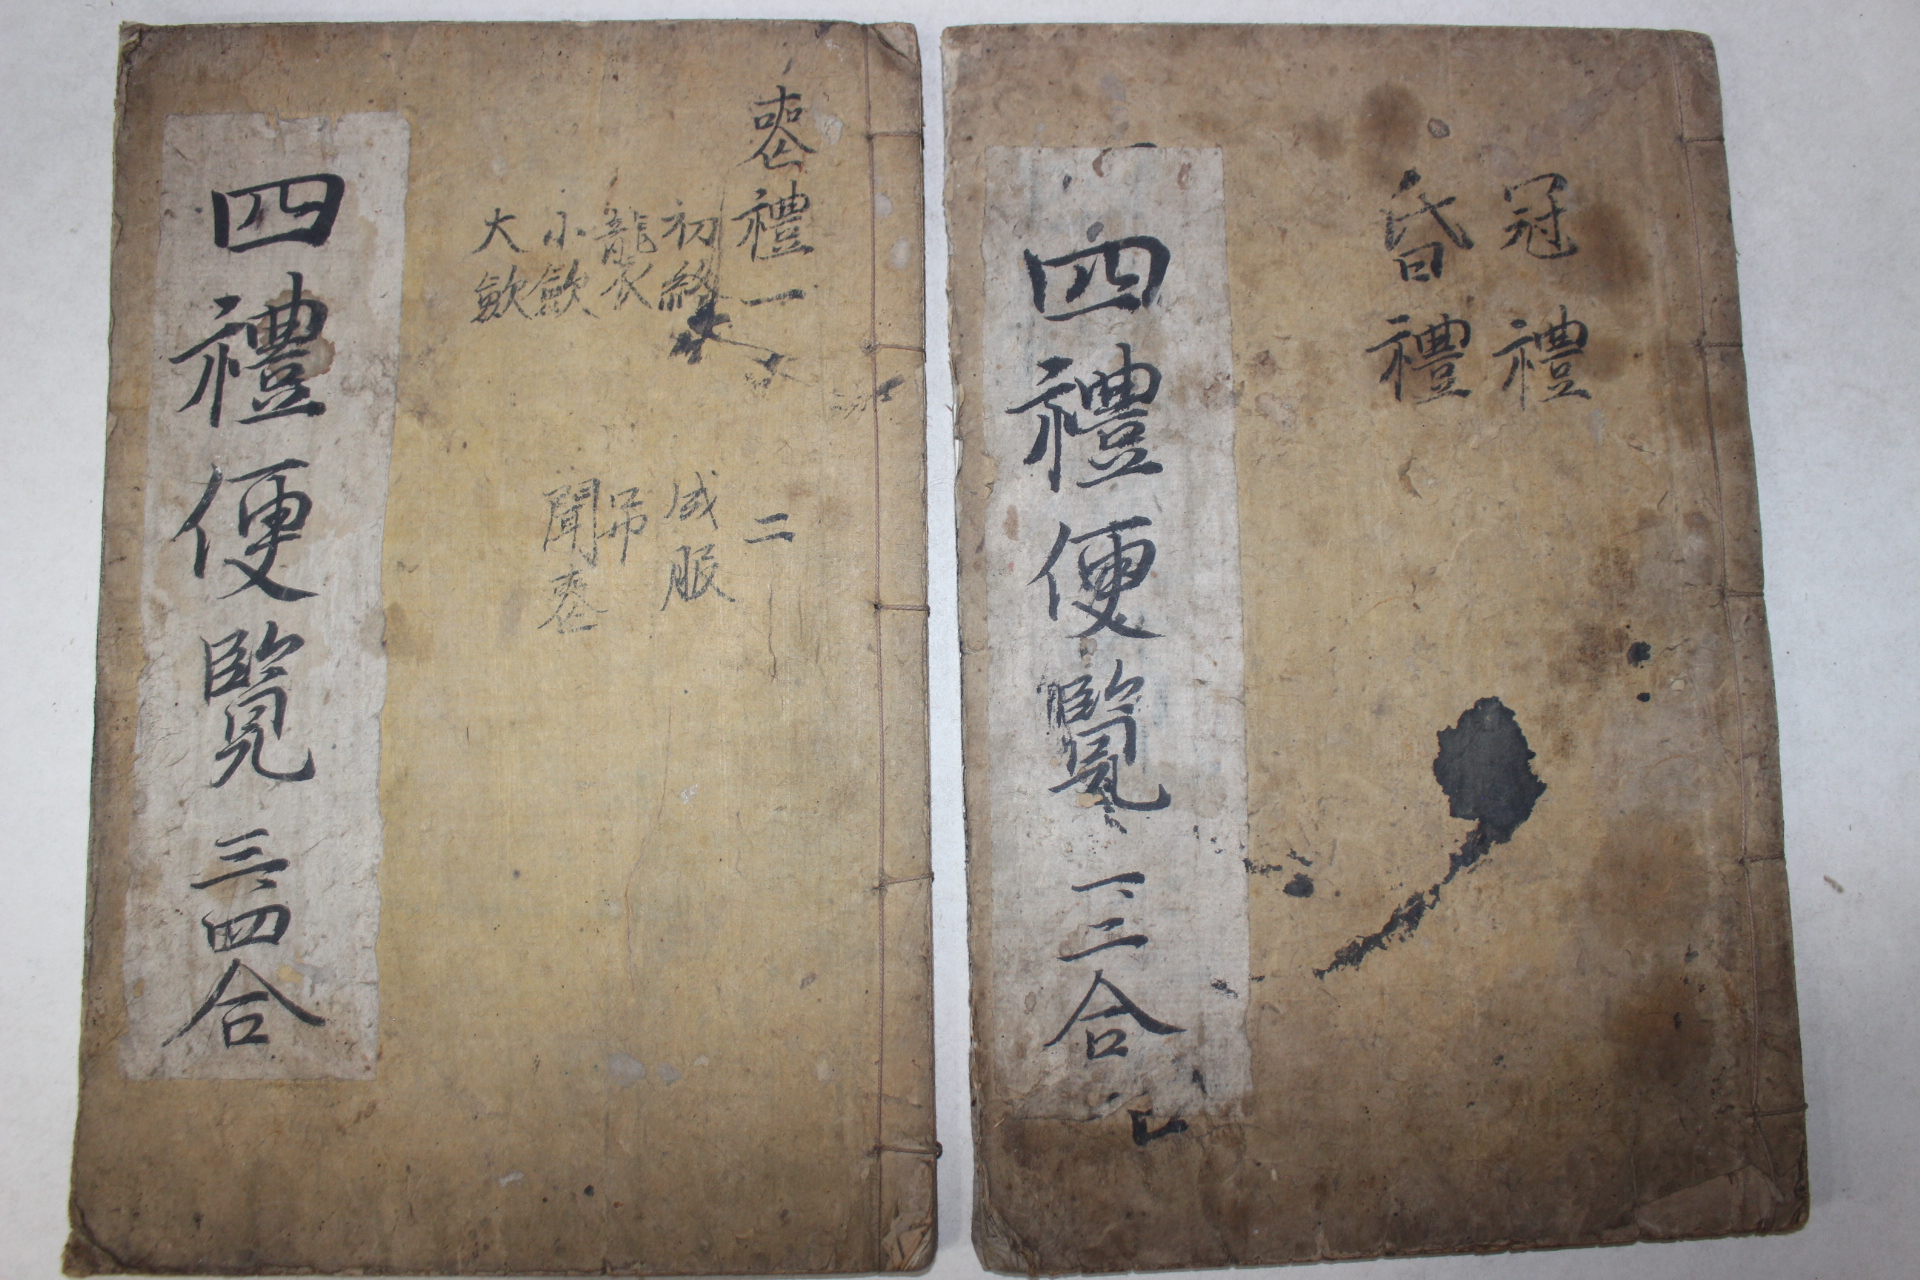 冠禮
昏禮
四禮便覽 一二合
喪禮一 二
初終 成服
襲 吊
小斂 聞喪
大斂
四禮便覽 三四合